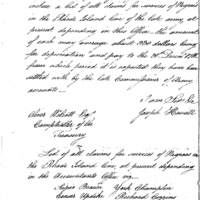 inclose a list of all claims for services of Negroes
in the Rhode Island line of the late army at
present depending in this Office. this amount
of each may average about 200 dollars being
for depreciation and pay to the
from which period it is expected they have been
settled with by the late Commissioner of Army
accounts.
Joseph Howell
Oliver Wolcott Esqr
Comptroller of the
Treasury
List of all claims for services of Negroes in
the Rhode Island line at present depending
in the Accountants Office viz
York Champlin
Cesar Updike Richard Cozzins